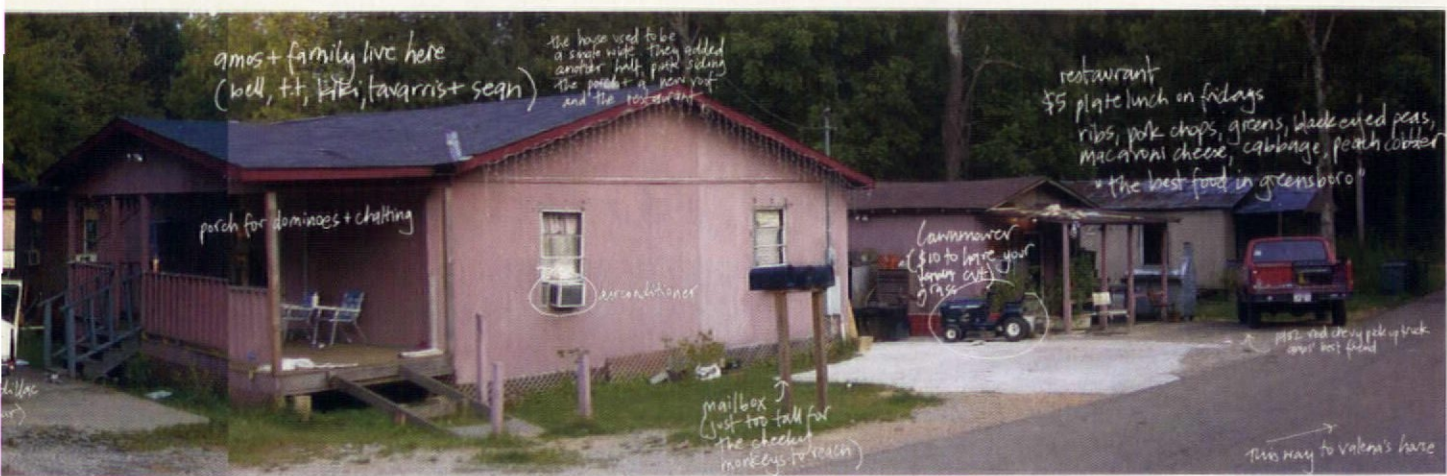 amos + family live here
(bell, t.t, kiki, tavarris + sean)
the house used to be
a single wide. they added
another half, put siding
the porch + a new roof
and the restaurant
restaurant
$5 plate lunch on fridays
ribs, pork chops, greens, blackeyed peas,
macaroni cheese, cabbage, peach cobbler
"the best food in greensboro"
porch for dominoes + chatting
airconditioner
lawnmower
($10 to have your
cut)
grass
mailbox
(just too tall for
the cheeky
monkeys to reach)
red chevy pick up truck
amos' best friend
This way to valena's